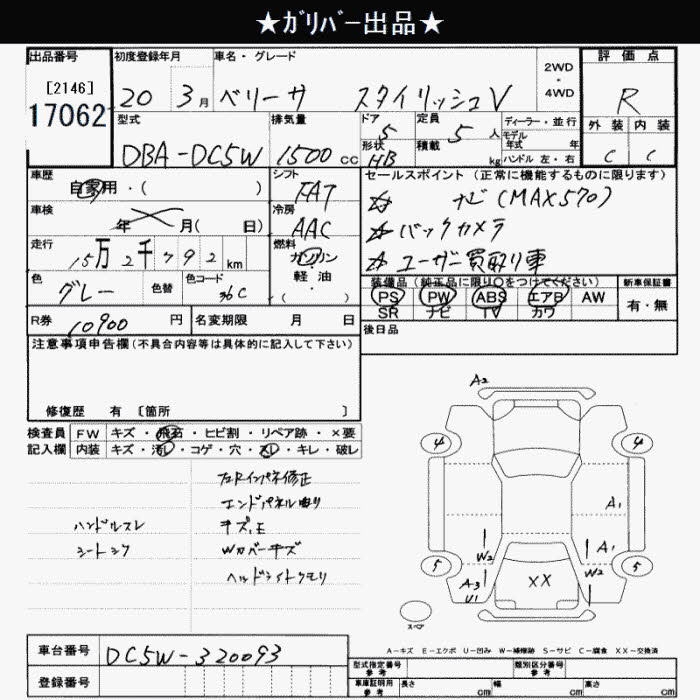 ★ガリバー出品★
出品番号
[2146]
17062
初度登録年月
20 3月
車名・グレード
ベリーサ スタイリッシュV
2WD・4WD
評価点
R
外装 内装
C C
型式
DBA-DC5W
排気量
1500cc
ドア
5
形状
HB
定員
5人
積載 kg
ディーラー・並行
モデル年式 年
ハンドル 左・右
車歴
自家用・( )
車検
年 月( 日)
走行
15万2千792km
色
グレー
色替
色コード
36C
シフト
FAT
冷房
AAC
燃料
ガソリン・軽油・( )
セールスポイント(正常に機能するものに限ります)
☆ ナビ(MAX570)
☆ バックカメラ
☆ ユーザー買取り車
装備品(純正品に限り○をつけてください)
PS PW ABS エアB AW
SR ナビ TV カワ
新車保証書
有・無
R券 10900円
名変期限 月 日
後日品
注意事項申告欄(不具合内容等は具体的に記入して下さい)
修復歴 有 [箇所 ]
検査員記入欄
FW キズ・飛石・ヒビ割・リペア跡・×要
内装 キズ・汚レ・コゲ・穴・スレ・キレ・破レ
フロアインパネ修正
エンドパネル曲り
ハンドルスレ キズ、E
シートシワ Wカバーキズ
ヘッドライトクモリ
A2
4 4
A1
W2 A1
5 A3 U1 XX W2 5
スペア
A-キズ E-エクボ U-凹み W-補修跡 S-サビ C-腐食 XX-交換済
車台番号 DC5W-320093
登録番号
型式指定番号 参考
類別区分番号 参考
車庫証明用 参考 長さ cm 幅 cm 高さ cm